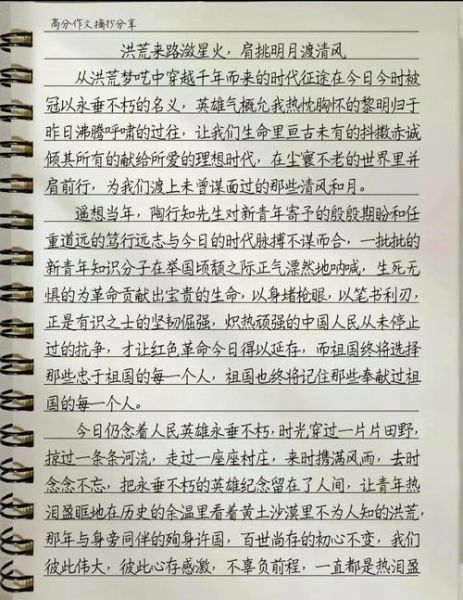 高分作文摘抄分享
洪荒来路激星火，肩挑明月渡清风
从洪荒梦呓中穿越千年而来的时代征途在今日今时被
冠以永垂不朽的名义，英雄气概允我热忱胸怀的黎明归于
昨日沸腾呼啸的过往，让我们生命里亘古未有的抖擞赤诚
倾其所有的献给所爱的理想时代，在尘寰不老的世界里并
肩前行，为我们渡上未曾谋面过的那些清风和月。
遥想当年，陶行知先生对新青年寄予的殷殷期盼和任
重道远的笃行远志与今日的时代脉搏不谋而合，一批批的
新青年知识分子在举国顷颓之际正气凛然地呐喊，生死无
惧的为革命贡献出宝贵的生命，以身堵枪眼，以笔书利刃，
正是有识之士的坚韧倔强，炽热顽强的中国人民从未停止
过的抗争，才让红色革命今日得以延存，而祖国终将选择
那些忠于祖国的每一个人，祖国也终将记住那些奉献过祖
国的每一个人。
今日仍念着人民英雄永垂不朽，时光穿过一片片田野，
掠过一条条河流，走过一座座村庄，来时携满风雨，去时
念念不忘，把永垂不朽的英雄纪念留在了人间，让青年热
泪盈眶地在历史的余温里看着黄土沙漠里不为人知的洪荒，
那年与身旁同伴的殉身许国，百世尚存的初心不变，我们
彼此伟大，彼此心存感激，不辜负前程，一直都是热泪盈